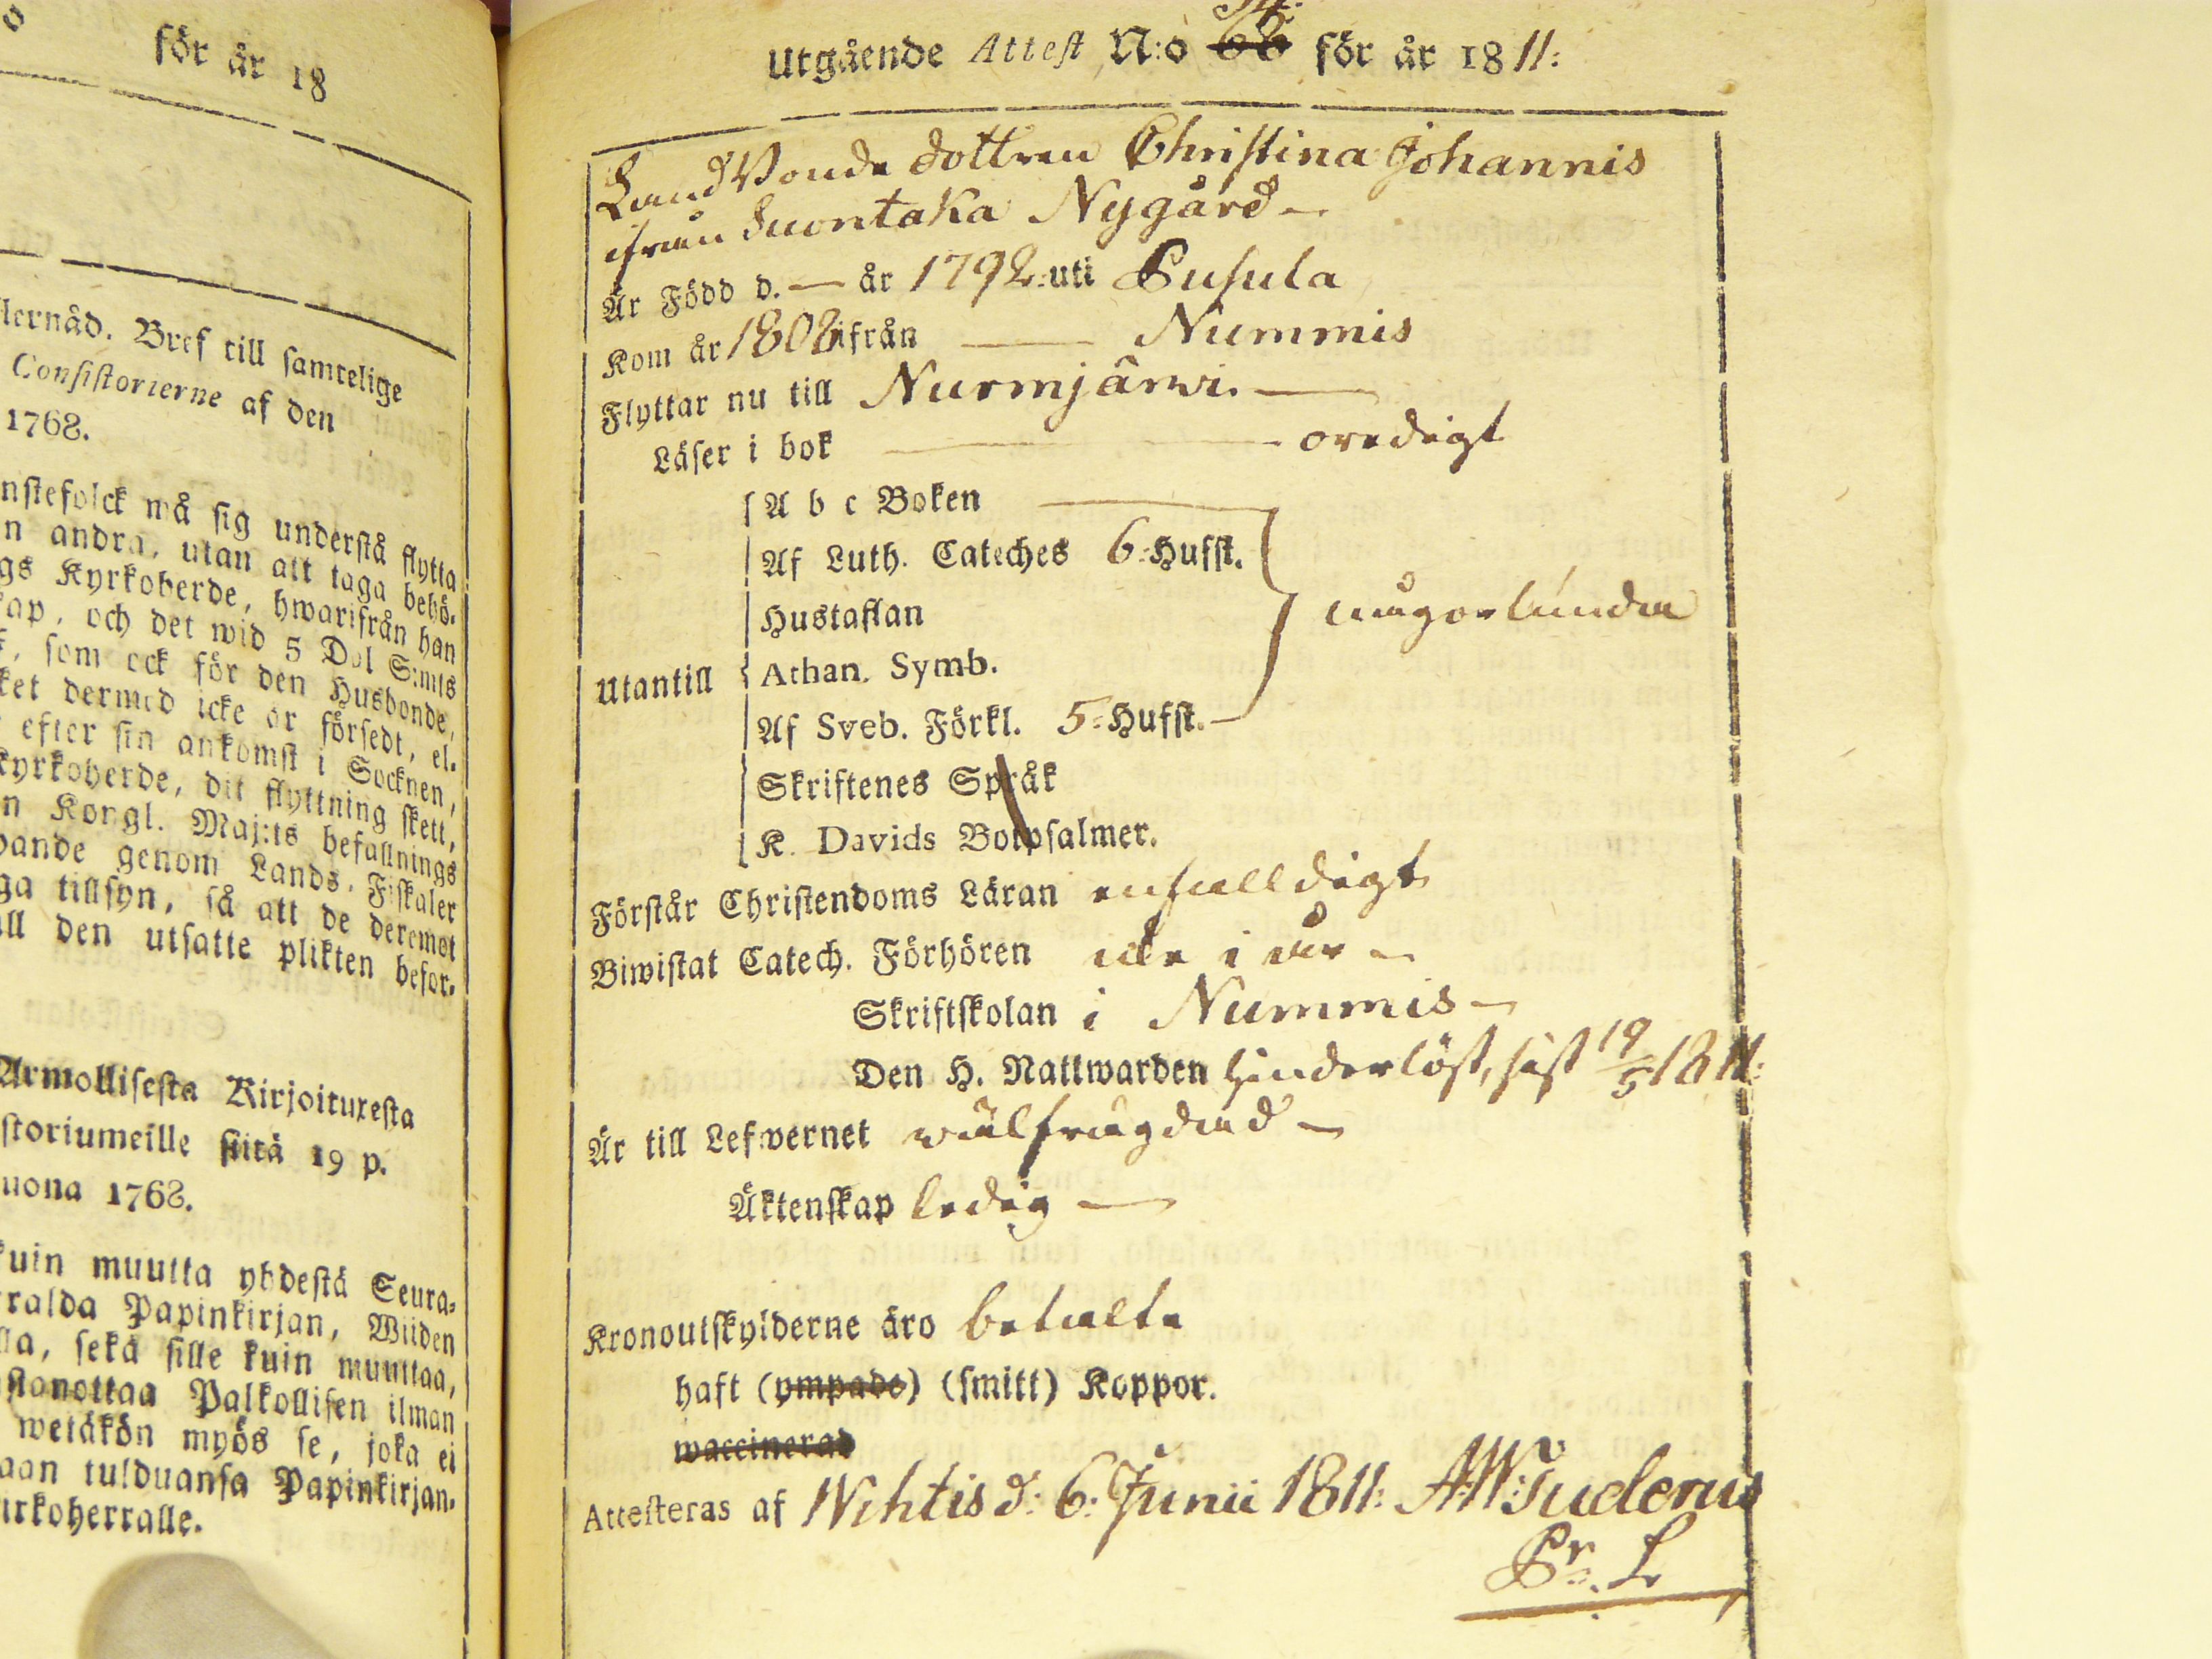 för år 18
lernåd. Bref till samtelige
Consistorierne af den
1768.
nstefolck må sig understå flytta
n andra, utan att taga behö-
gs Kyrkoherde, hwarifrån han
ap, och det wid 5 Dal S:mts
, som ock för den Husbonde,
ket dermed icke är försedt, el-
efter sin ankomst i Socknen,
kyrkoherde, dit flyttning skett,
n Kongl. Maj:ts befallnings
bande genom Lands-Fiskaler
ga tillsyn, så att de deremot
ll den utsatte plikten befor-
Armollisesta Kirjoituxesta
storiumeille siitä 19 p.
uona 1768.
kuin muutta yhdestä Seura-
ralda Papinkirjan, Wiiden
lla, sekä sille kuin muuttaa,
stanottaa Palkollisen ilman
wetäkön myös se, joka ei
aan tulduansa Papinkirjan-
irkoherralle.
Utgående Attest N:o för år 1811:
Land Bonde dottren Christina Johannis
ifrån Suontaka Nygård
Är Född d. — år 1792: uti Pusula
Kom år 1808 ifrån — Nummis
Flyttar nu till Nurmjärwi. —
Läser i bok — oredigt
A b c Boken
Af Luth. Cateches 6: Hufst.
Hustaflan
någorlunda
Utantill
Athan. Symb.
Af Sveb. Förkl. 5: Hufst.
Skriftenes Språk
K. Davids Botpsalmer.
Förstår Christendoms Läran enfalldigt
Biwistat Catech. Förhören icke i år
Skriftskolan i Nummis
Den H. Nattwarden hinderlöst, sist 19/5 1811:
Är till Lefwernet wälfrägdad
Äktenskap ledig —
Kronoutskylderne äro betalte
haft (ympade) (smitt) Koppor.
waccinerad
Attesteras af Wihtis d: 6: Junii 1811: A:W: Tuderus
Pr. L